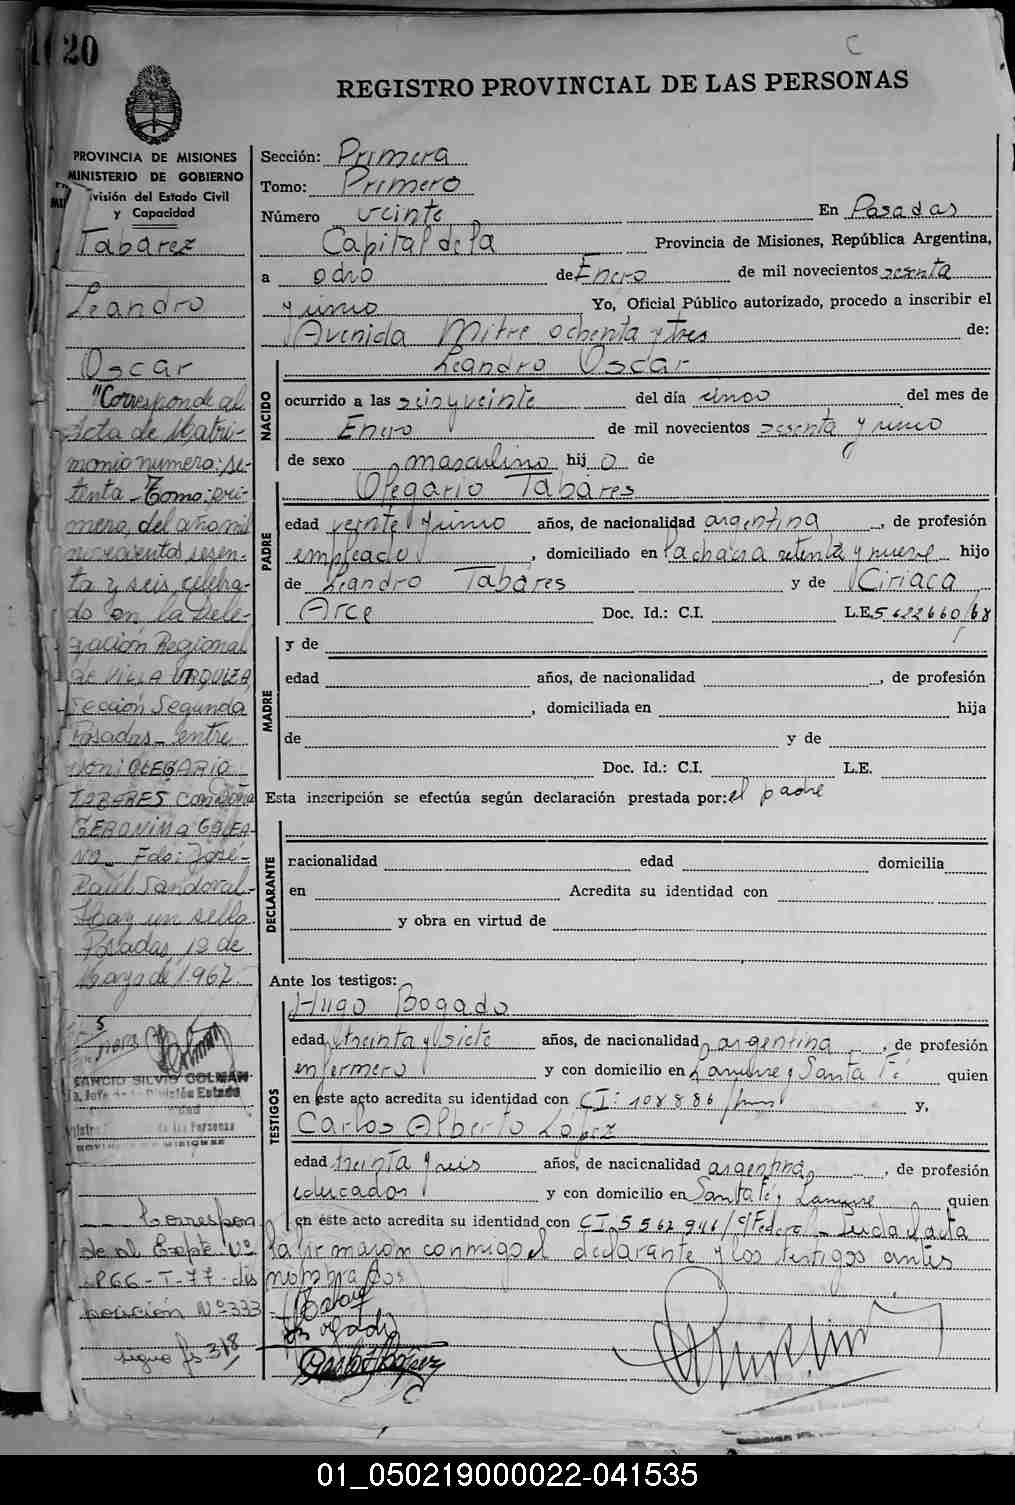 20
C
REGISTRO PROVINCIAL DE LAS PERSONAS
PROVINCIA DE MISIONES
MINISTERIO DE GOBIERNO
División del Estado Civil
y Capacidad
Tabarez
Leandro
Oscar
"Corresponde al
Acta de Matri-
monio numero: se-
tenta - Tomo: pri-
mero, del año mil
novecientos sesen-
ta y seis, celebra-
do en la Dele-
gación Regional
de VILLA URQUIZA,
Sección Segunda
Posadas - entre
Don: OLEGARIO
TABARES con DOÑA
GERONIMA GALEA-
NO. Fdo: José
Raúl Sandoval -
Hay un sello
Posadas, 12 de
Mayo de 1.967.
SANCIO SILVIO GOLMAN
División Estado
de las Personas
Correspon
de al Expte. Nº
-T-77- dis
posición Nº 333
sigue fs 318
Sección: Primera
Tomo: Primero
Número veinte En Posadas
Capital de la Provincia de Misiones, República Argentina,
a ocho de Enero de mil novecientos sesenta
y uno Yo, Oficial Público autorizado, procedo a inscribir el
Avenida Mitre ochenta y tres de:
Leandro Oscar
NACIDO
ocurrido a las seis y veinte del día cinco del mes de
Enero de mil novecientos sesenta y uno
de sexo masculino hijo de
PADRE
Olegario Tabares
edad veinte y uno años, de nacionalidad argentina, de profesión
empleado, domiciliado en la chacra setenta y nueve hijo
de Leandro Tabares y de Ciriaca
Arce Doc. Id.: C.I. L.E. 5622660/68
MADRE
y de
edad años, de nacionalidad , de profesión
, domiciliada en hija
de y de
Doc. Id.: C.I. L.E.
Esta inscripción se efectúa según declaración prestada por: el padre
DECLARANTE
racionalidad edad domicilia
en Acredita su identidad con
y obra en virtud de
Ante los testigos:
TESTIGOS
Hugo Bogado
edad treinta y siete años, de nacionalidad argentina, de profesión
enfermero y con domicilio en Lanusse y Santa Fé quien
en este acto acredita su identidad con CI: 108886 y,
Carlos Alberto López
edad treinta y seis años, de nacionalidad argentina, de profesión
educador y con domicilio en Santa Fé y Lanusse quien
en este acto acredita su identidad con CI. 5562946/c/Federal - Leida el acta
la firmaron conmigo el declarante y los testigos antes
nombrados
01_050219000022-041535